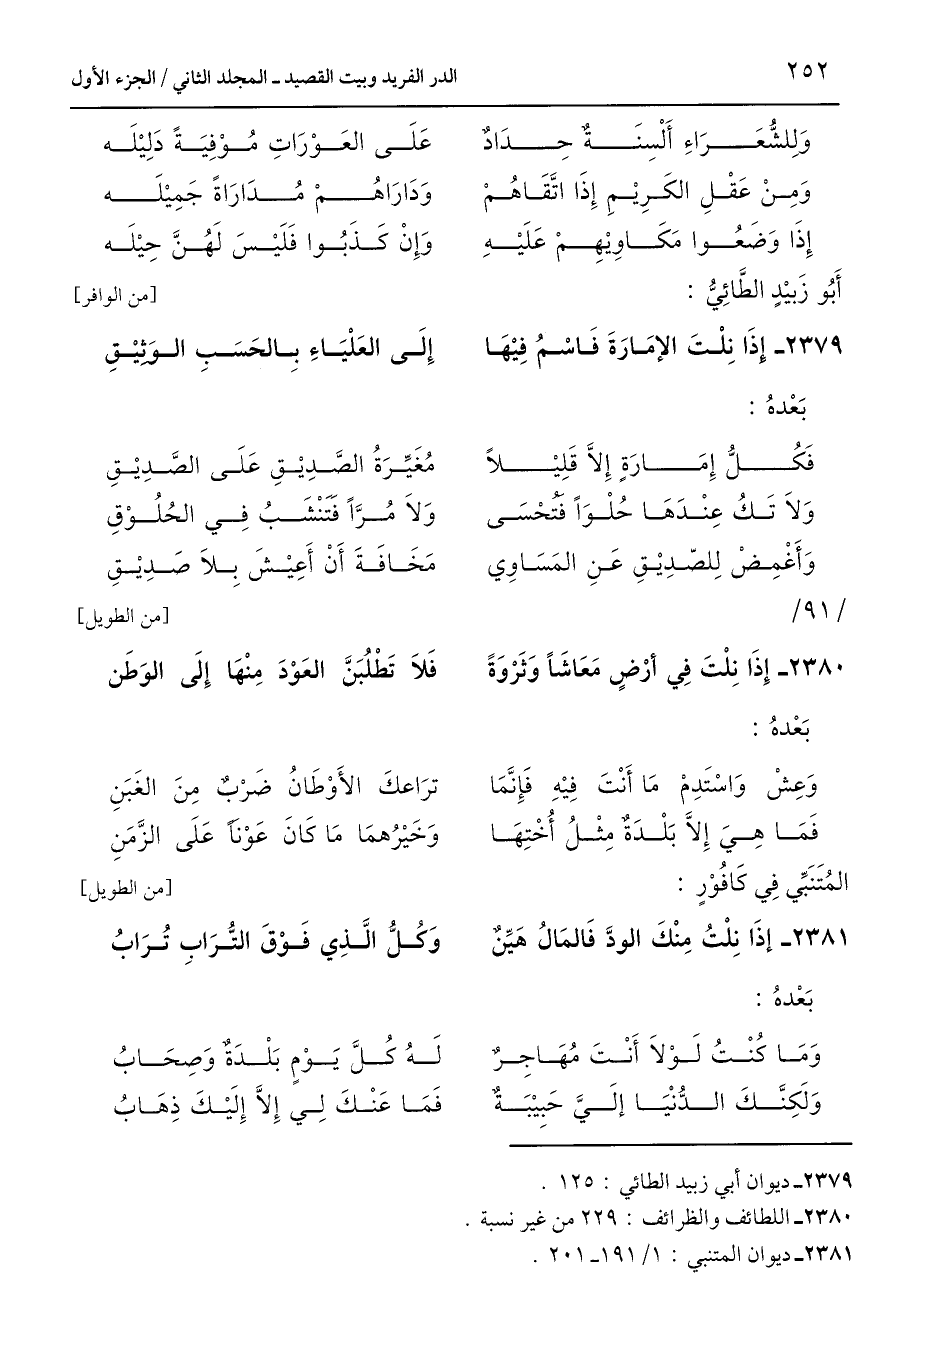 ٢٥٢ الدر الفريد وبيت القصيد ـ المجلد الثاني / الجزء الأول
وَلِلشُّعَرَاءِ أَلْسِنَةٌ حِدَادٌ عَلَى العَوْرَاتِ مُوْفِيَةً دَلِيْلَه
وَمِنْ عَقْلِ الكَرِيْمِ إِذَا اتَّقَاهُمْ وَدَارَاهُمْ مُدَارَاةً جَمِيْلَه
إِذَا وَضَعُوا مَكَاوِيْهِمْ عَلَيْهِ وَإِنْ كَذَبُوا فَلَيْسَ لَهُنَّ حِيْلَه
أَبُو زَبِيْدٍ الطَّائِيُّ : [من الوافر]
٢٣٧٩ـ إِذَا نِلْتَ الإمَارَةَ فَاسْمُ فِيْهَا إِلَى العَلْيَاءِ بِالحَسَبِ الوَثِيْقِ
بَعْدهُ :
فَكُلُّ إِمَارَةٍ إِلاَّ قَلِيْلاً مُغَيِّرَةُ الصَّدِيْقِ عَلَى الصَّدِيْقِ
وَلاَ تَكُ عِنْدَهَا حُلْوَاً فَتُحْسَى وَلاَ مُرَّاً فَتَنْشَبُ فِي الحُلُوْقِ
وَأَغْمِضْ لِلصَّدِيْقِ عَنِ المَسَاوِي مَخَافَةَ أَنْ أَعِيْشَ بِلاَ صَدِيْقِ
/٩١/ [من الطويل]
٢٣٨٠ـ إِذَا نِلْتَ فِي أَرْضٍ مَعَاشَاً وَثَرْوَةً فَلاَ تَطْلُبَنَّ العَوْدَ مِنْهَا إِلَى الوَطَن
بَعْدهُ :
وَعِشْ وَاسْتَدِمْ مَا أَنْتَ فِيْهِ فَإِنَّمَا تراعكَ الأَوْطَانُ ضَرْبٌ مِنَ الغَبَنِ
فَمَا هِيَ إِلاَّ بَلْدَةٌ مِثْلُ أُخْتِهَا وَخَيْرُهمَا مَا كَانَ عَوْنَاً عَلَى الزَّمَنِ
المُتَنَبِّي فِي كَافُوْرٍ : [من الطويل]
٢٣٨١ـ إِذَا نِلْتُ مِنْكَ الودَّ فَالمَالُ هَيِّنٌ وَكُلُّ الَّذِي فَوْقَ التُّرَابِ تُرَابُ
بَعْدهُ :
وَمَا كُنْتُ لَوْلاَ أَنْتَ مُهَاجِرٌ لَهُ كُلَّ يَوْمٍ بَلْدَةٌ وَصِحَابُ
وَلَكِنَّكَ الدُّنْيَا إِلَيَّ حَبِيْبَةٌ فَمَا عَنْكَ لِي إِلاَّ إِلَيْكَ ذِهَابُ
٢٣٧٩ـ ديوان أبي زبيد الطائي : ١٢٥ .
٢٣٨٠ـ اللطائف والظرائف : ٢٢٩ من غير نسبة .
٢٣٨١ـ ديوان المتنبي : ١/ ١٩١ـ ٢٠١ .